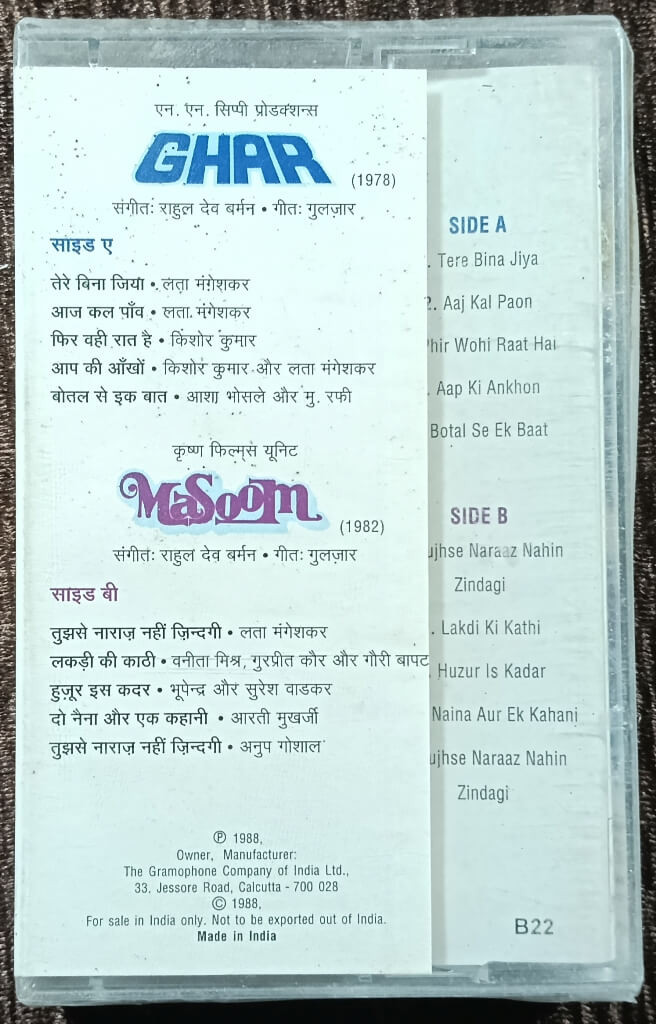 एन. एन. सिप्पी प्रोडक्शन्स
GHAR
(1978)
संगीतः राहुल देव बर्मन • गीतः गुलज़ार
साइड ए
तेरे बिना जिया • लता मंगेशकर
आज कल पाँव • लता मंगेशकर
फिर वही रात है • किशोर कुमार
आप की आँखों • किशोर कुमार और लता मंगेशकर
बोतल से इक बात • आशा भोसले और मु. रफी
कृष्ण फिल्म्स यूनिट
MaSoom
(1982)
संगीतः राहुल देव बर्मन • गीतः गुलज़ार
साइड बी
तुझसे नाराज़ नहीं ज़िन्दगी • लता मंगेशकर
लकड़ी की काठी • वनीता मिश्र, गुरप्रीत कौर और गौरी बापट
हुज़ूर इस कदर • भूपेन्द्र और सुरेश वाडकर
दो नैना और एक कहानी • आरती मुखर्जी
तुझसे नाराज़ नहीं ज़िन्दगी • अनुप गोशाल
℗ 1988,
Owner, Manufacturer:
The Gramophone Company of India Ltd.,
33. Jessore Road, Calcutta - 700 028
© 1988,
For sale in India only. Not to be exported out of India.
Made in India
SIDE A
. Tere Bina Jiya
2. Aaj Kal Paon
Phir Wohi Raat Hai
. Aap Ki Ankhon
Botal Se Ek Baat
SIDE B
ujhse Naraaz Nahin
Zindagi
. Lakdi Ki Kathi
Huzur Is Kadar
Naina Aur Ek Kahani
ujhse Naraaz Nahin
Zindagi
B22